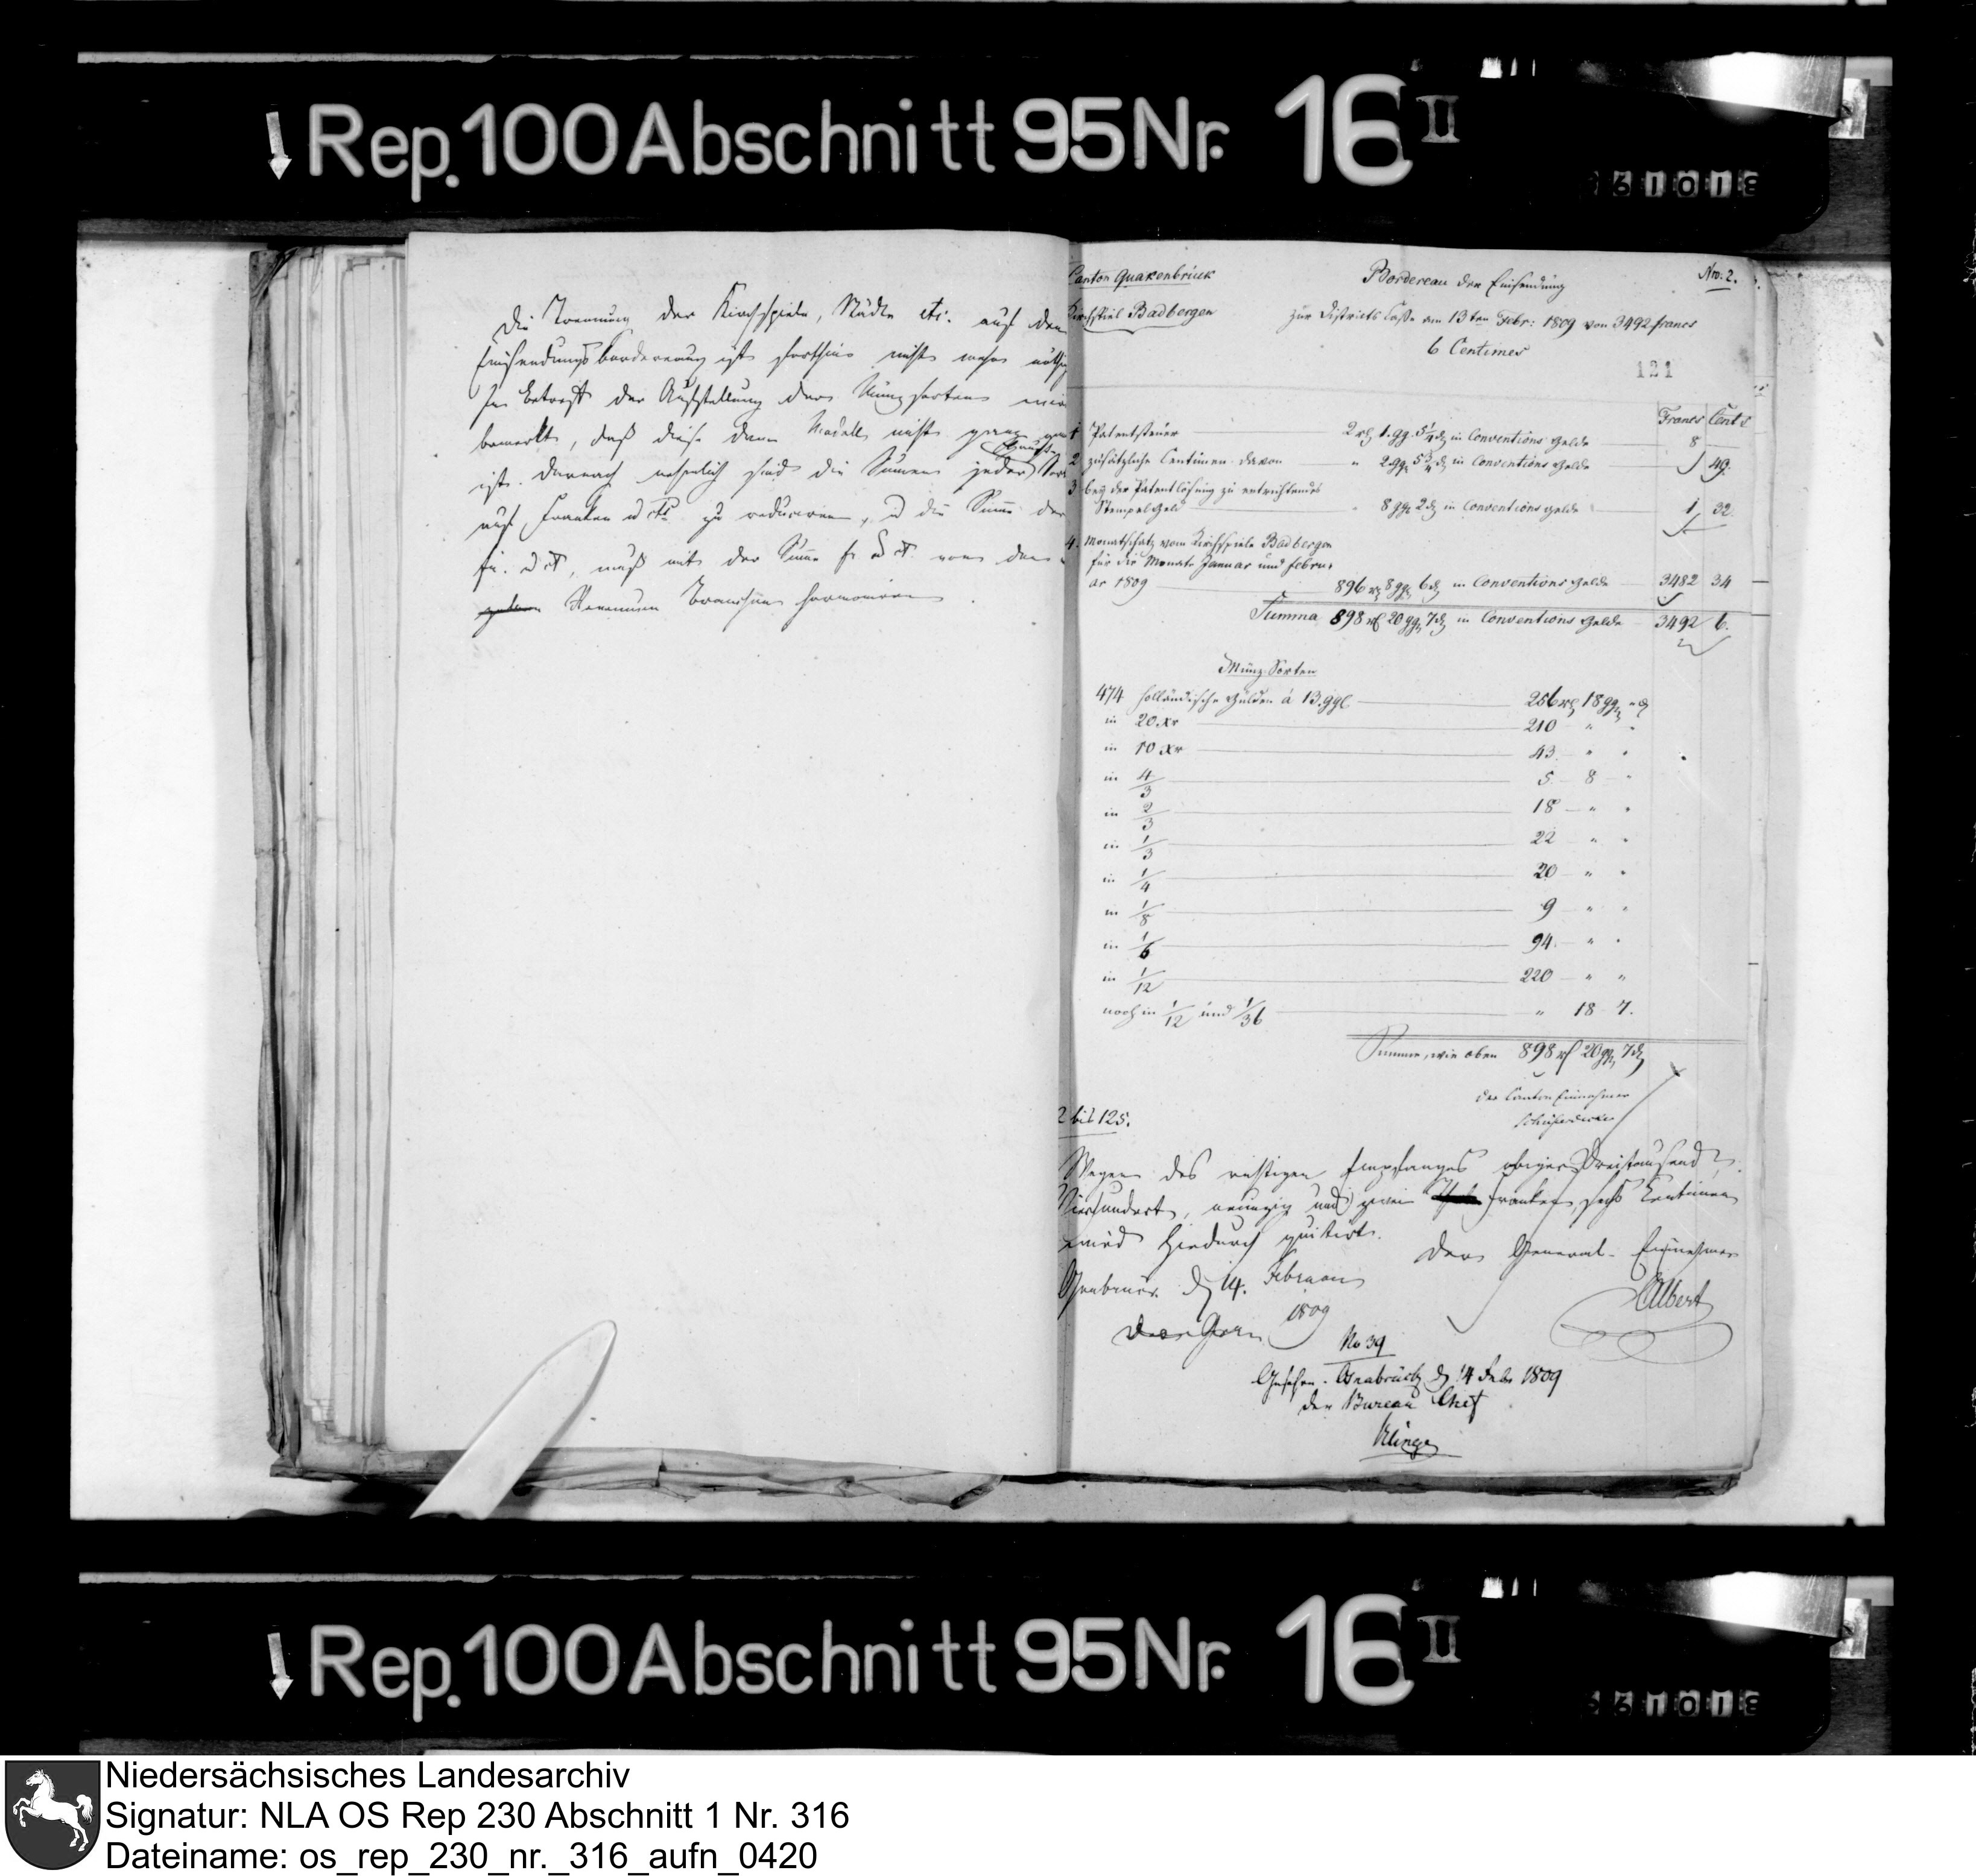 Rep. 100 Abschnitt 95 Nr. 16 II
Die Trennung der Kirchspiele, Städte etc. auf den
Einsendungsbordereaux ist forthin nicht mehr nöthig
In Betreff der Aufstellung der Münzsorten wird
bemerkt, daß diese dem Modell nicht ganz
ist. Darnach nehmlich sind die Summen jeder
auf Franken u Ct zu reduciren, u die Summe der
fr. u Ct, muß mit der Sume fr u Ct von den
Steuern harmoniren
Canton Quakenbrück
Kirchspiel Badbergen
Bordereau der Einsendung
zur Districts Casse am 13ten Febr: 1809 von 3492 francs
6 Centimes
Nro. 2.
121
Francs Cents
1 Patentsteuer 2 rl 1. gg. 5 1/4 d in Conventions Gelde 8
2 zusätzliche Centimen davon " 2 gg 5 3/4 d in Conventions Gelde " 49.
3 bey der Patentlösung zu entrichtendes
Stempelgeld 8 gg 2 d in Conventions Gelde 1 32.
4. Monatschatz vom Kirchspiele Badbergen
für die Monate Januar und Febru-
ar 1809 896 rl 8 gg 6 d in Conventions Gelde 3482 34
Summa 898 rl 20 gg 7 d in Conventions Gelde 3492 6.
Münz Sorten
474 holländische Gülden á 13. ggl 256 rl 18 gg " d
in 20. Xr 210 " "
in 10 Xr 43. " "
in 4/3 5 8 "
in 2/3 18 " "
in 1/3 22 " "
in 1/4 20 " "
in 1/8 9 " "
in 1/6 94. " "
in 1/12 220 " "
noch in 1/12 und 1/36 " 18 7.
Summa, wie oben 898 rl 20 gg 7 d
Der Canton Einnehmer
2 bis 125.
Wegen des richtigen Empfanges obiger Dreitausend
Vierhundert, neunzig und zwei Franken, sechs Centimen
wird hiedurch quitirt.
Osnabrück d 14. Februar
1809
Der General-Einnehmer
Albert
Der Gen
No 39
Gesehen. Osnabrück d 14 Febr 1809
der Bureau Chef
Klinge
Rep. 100 Abschnitt 95 Nr. 16 II
Niedersächsisches Landesarchiv
Signatur: NLA OS Rep 230 Abschnitt 1 Nr. 316
Dateiname: os_rep_230_nr._316_aufn_0420